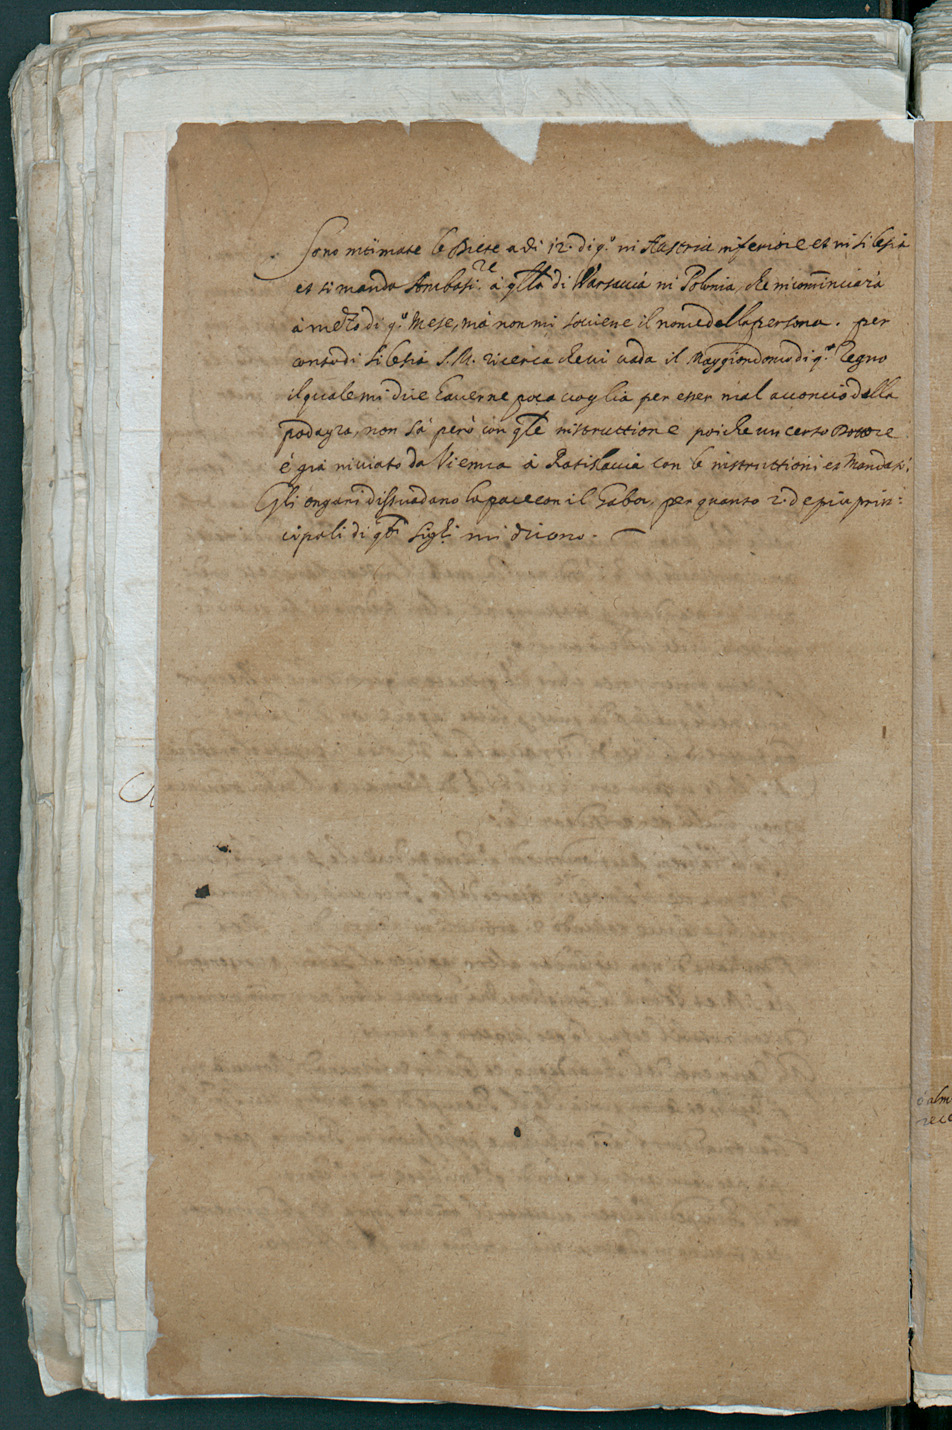 Sono intimate le Diete a di 12. di q.o in Austria inferiore et in Silesia
et si manda Ambasi.re à q.lla di Varsauia in Polonia, che incominciarà
à mezo di q.o Mese, mà non mi souiene il nome della persona. per
conto di Silesia S. M. ricerca che ui uada il Maggiordomo di q.o Regno
il quale mi dice hauerne poca uoglia per esser mal acconcio dalla
podagra, non sà però con q.le instruttione poiche un certo Dottore
é già inuiato da Vienna à Ratislauia con le instruttioni et Mandati.
Gli ongari dissuadano la pace con il Gabor, per quanto 2. de piu prin:
cipali di q.ti Sig.ri mi dicono.